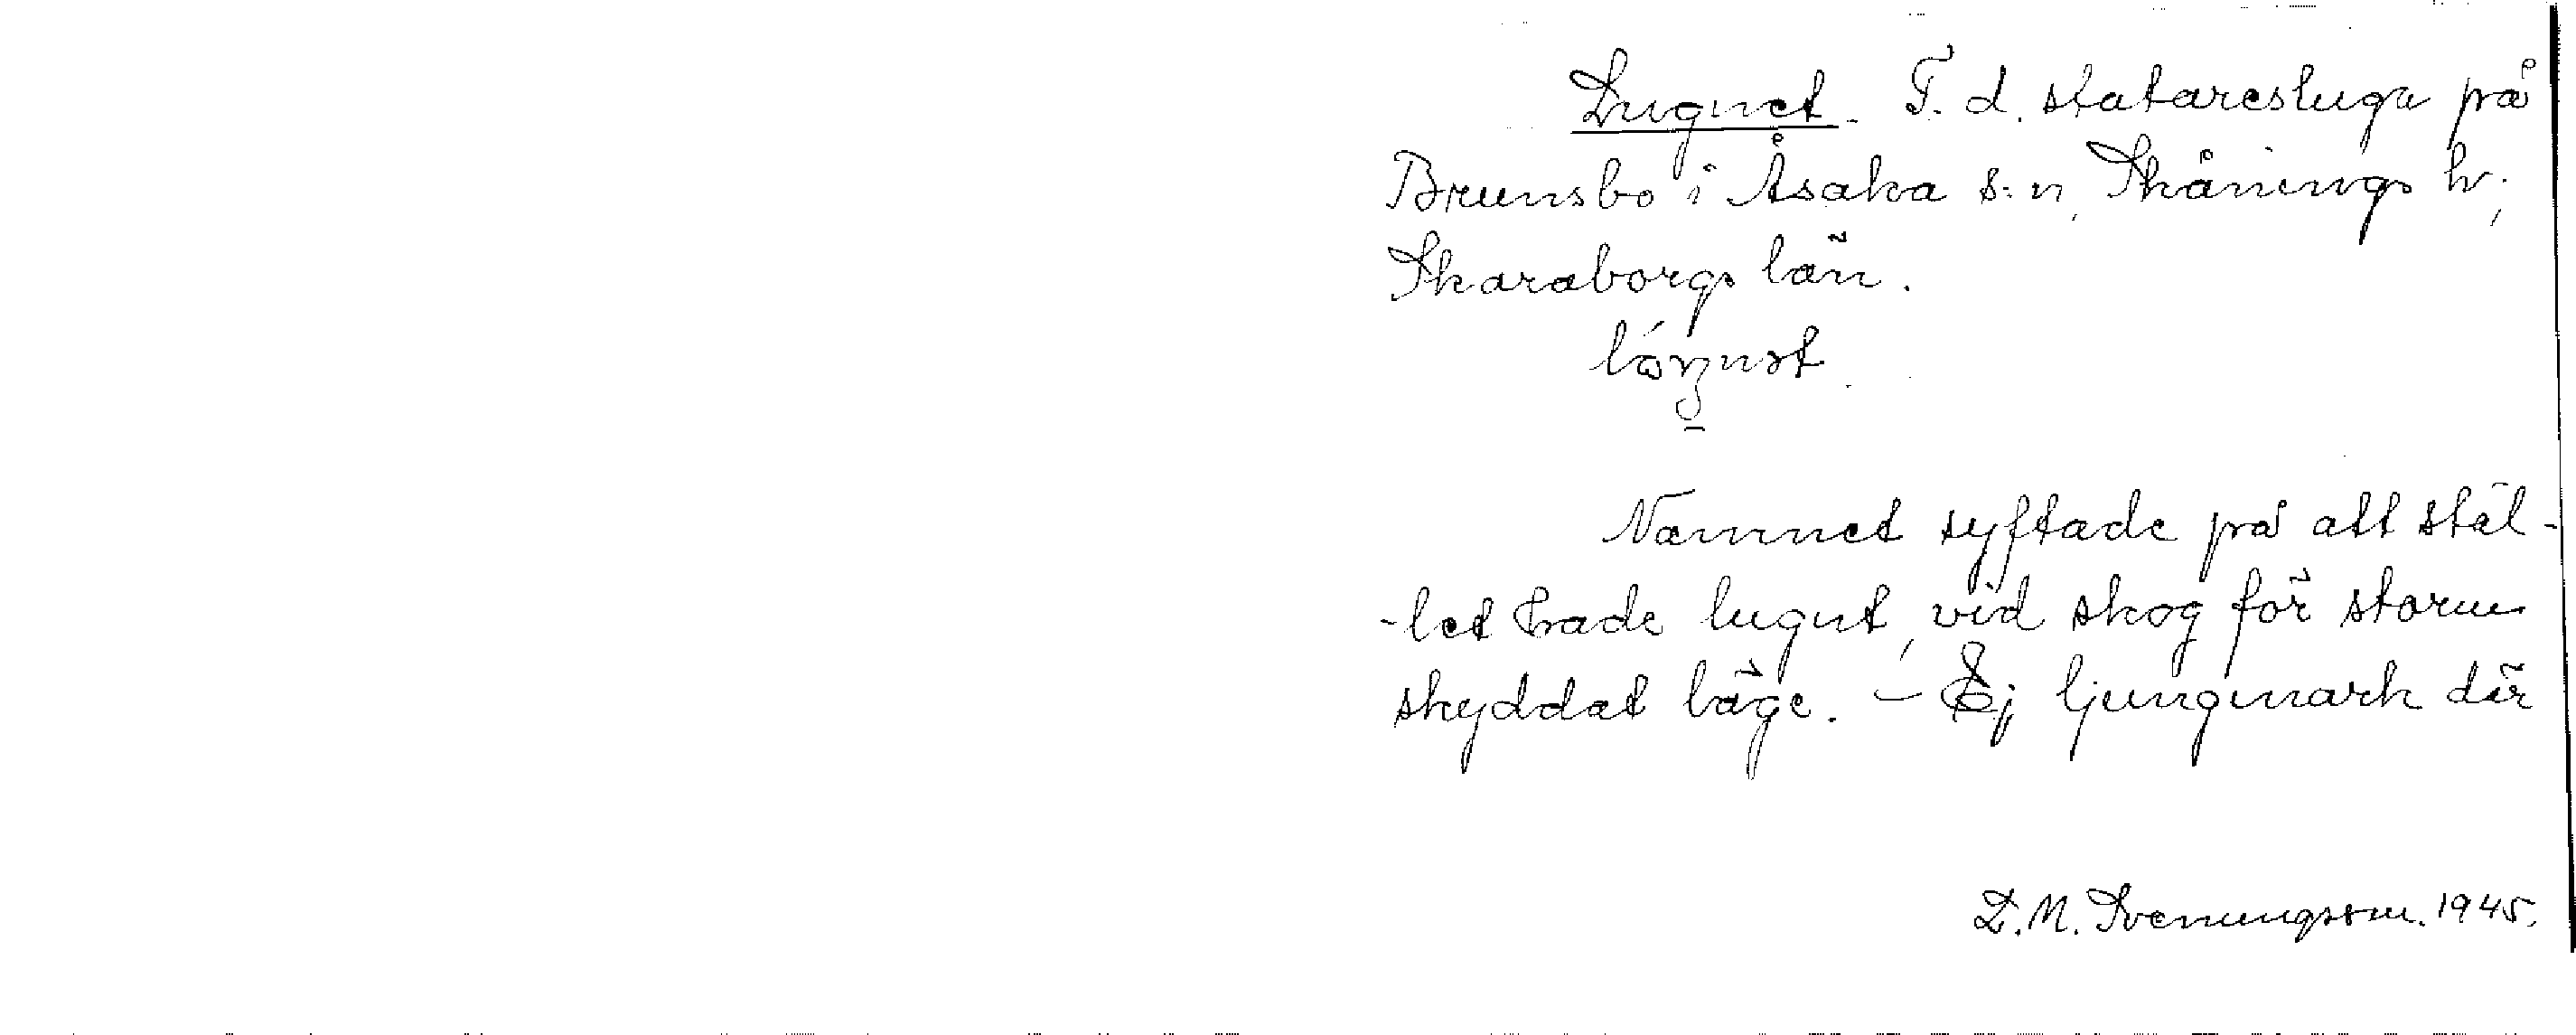 Lugnet. F. d. statarestuga på
Brunsbo i Åsaka s:n, Skånings hd;
Skaraborgs län.
Namnet syftade på att stäl-
-let hade lugnt, vid skog för storm
skyddat läge. – Ej ljungmark där
D. M. Svenungsson. 1945.